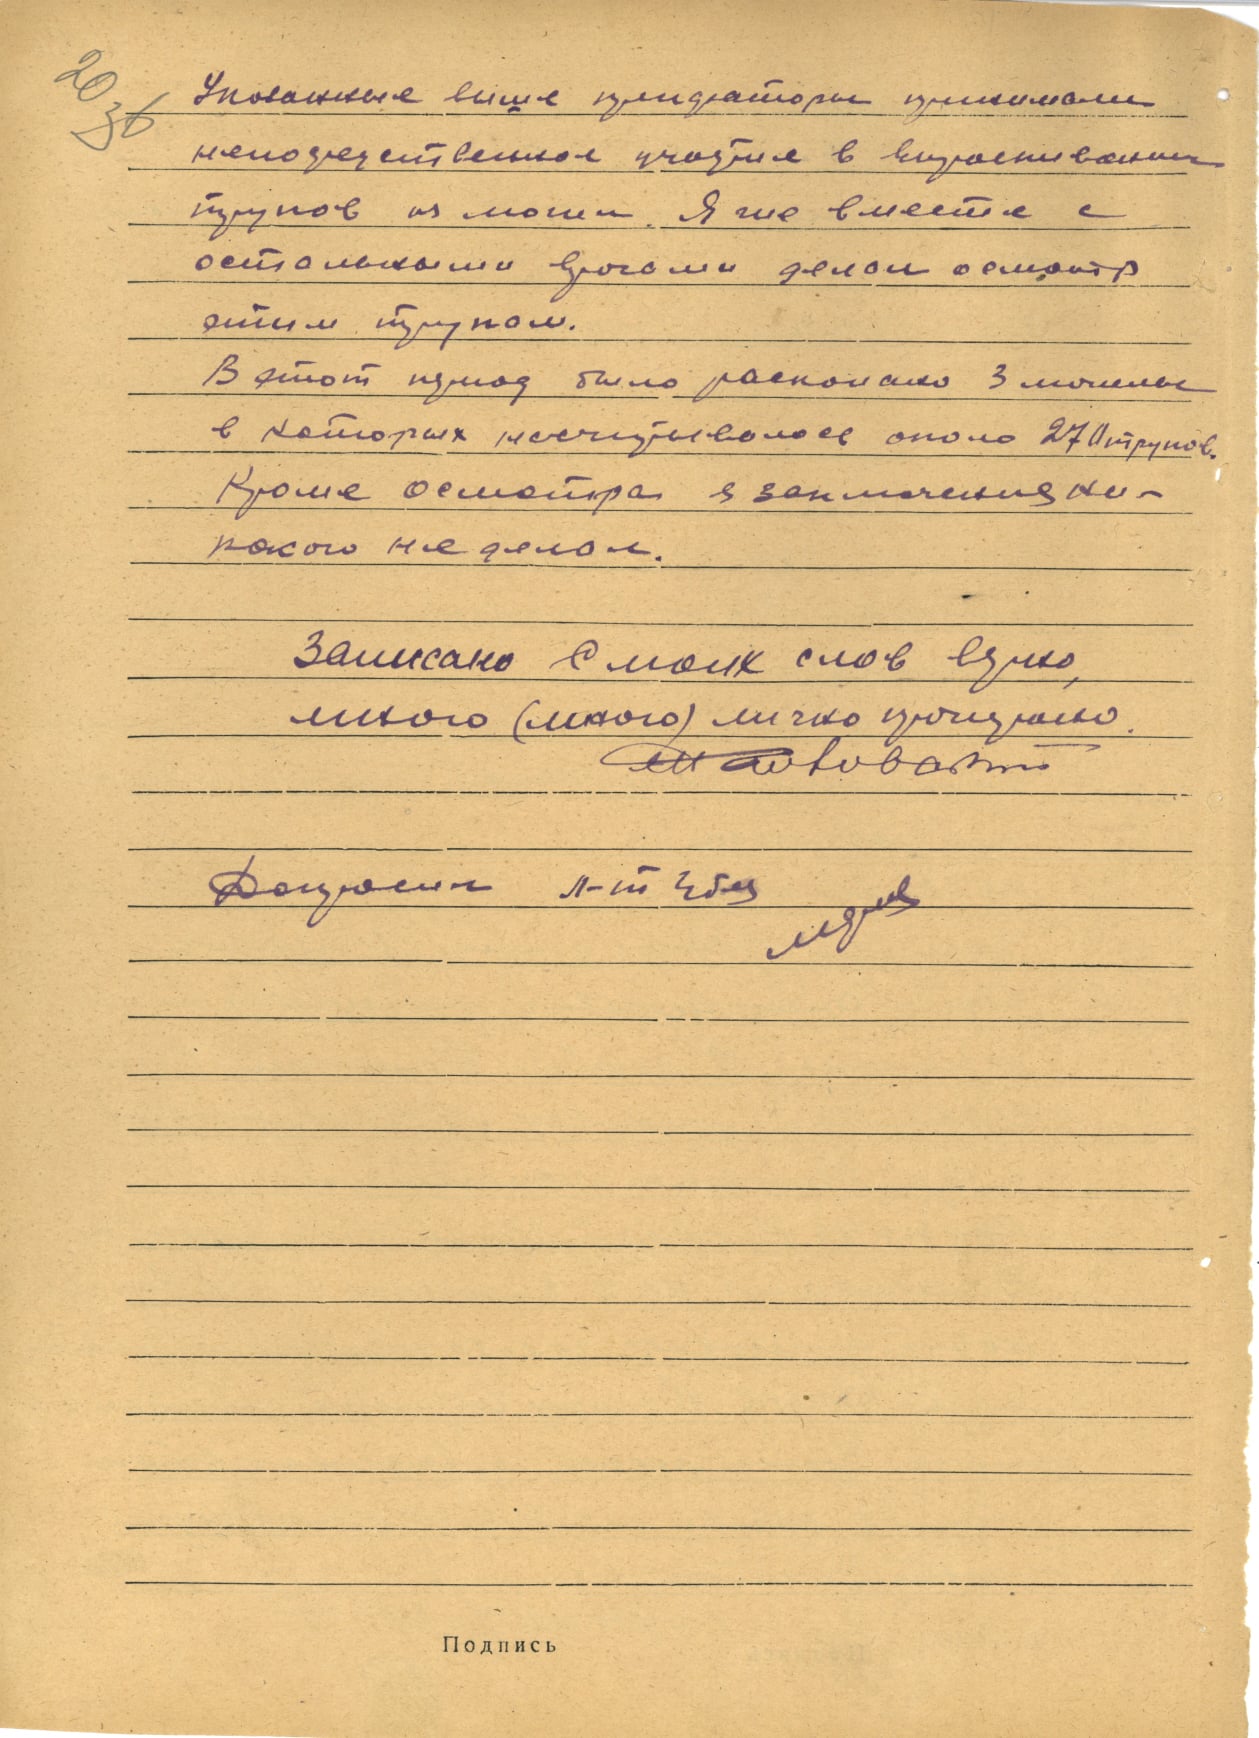 20
36
Указанные выше принимали
непосредственное участие в
трупов из могил. Я же вместе с
остальными врачами делал осмотр
этим трупам.
В этот период было раскопано 3 могилы
в которых насчитывалось около 270 трупов.
Кроме осмотра я заключения ни-
какого не делал.
Записано с моих слов верно,
мною (мною) лично прочитано.
Допросил л-т
Подпись